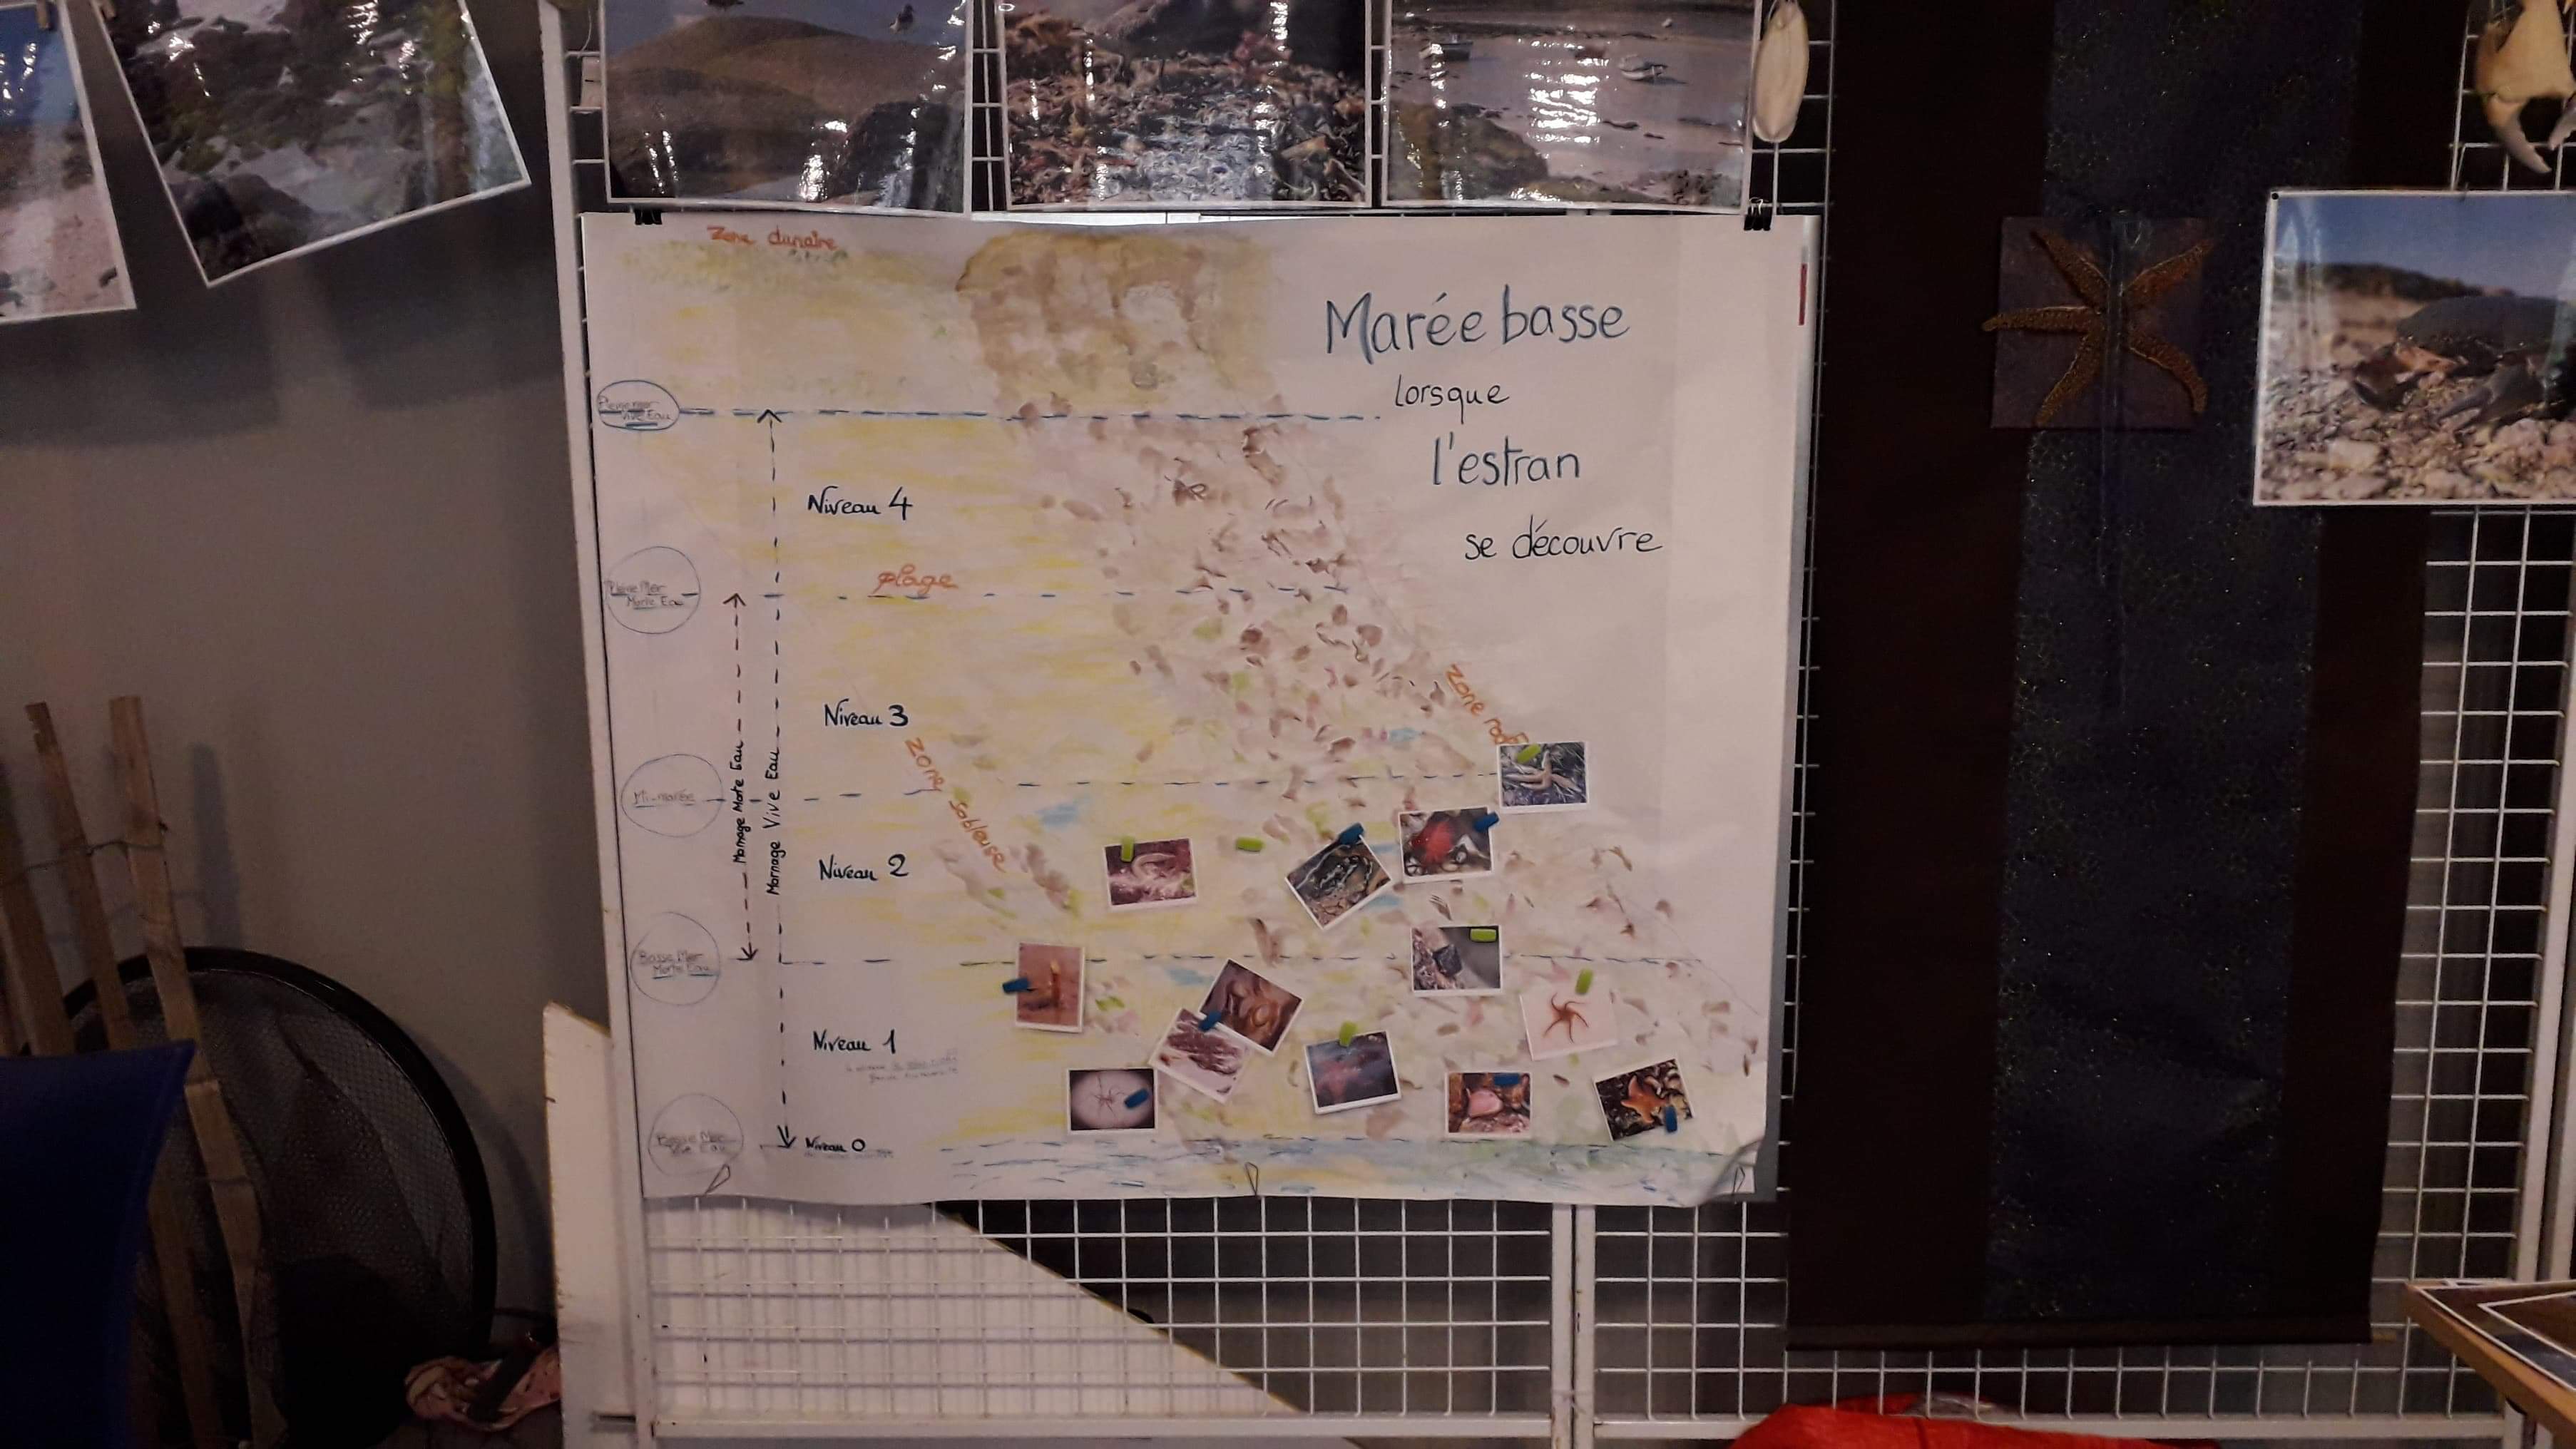 Zone dunaire
Marée basse
lorsque
l'estran
se découvre
Pleine mer
Vive Eau
Niveau 4
plage
Pleine Mer
Morte Eau
Niveau 3
Zone
Zone sableuse
Mi-marée
Marnage Morte Eau
Marnage Vive Eau
Niveau 2
Basse Mer
Morte Eau
Niveau 1
Basse Mer
Vive Eau
Niveau 0